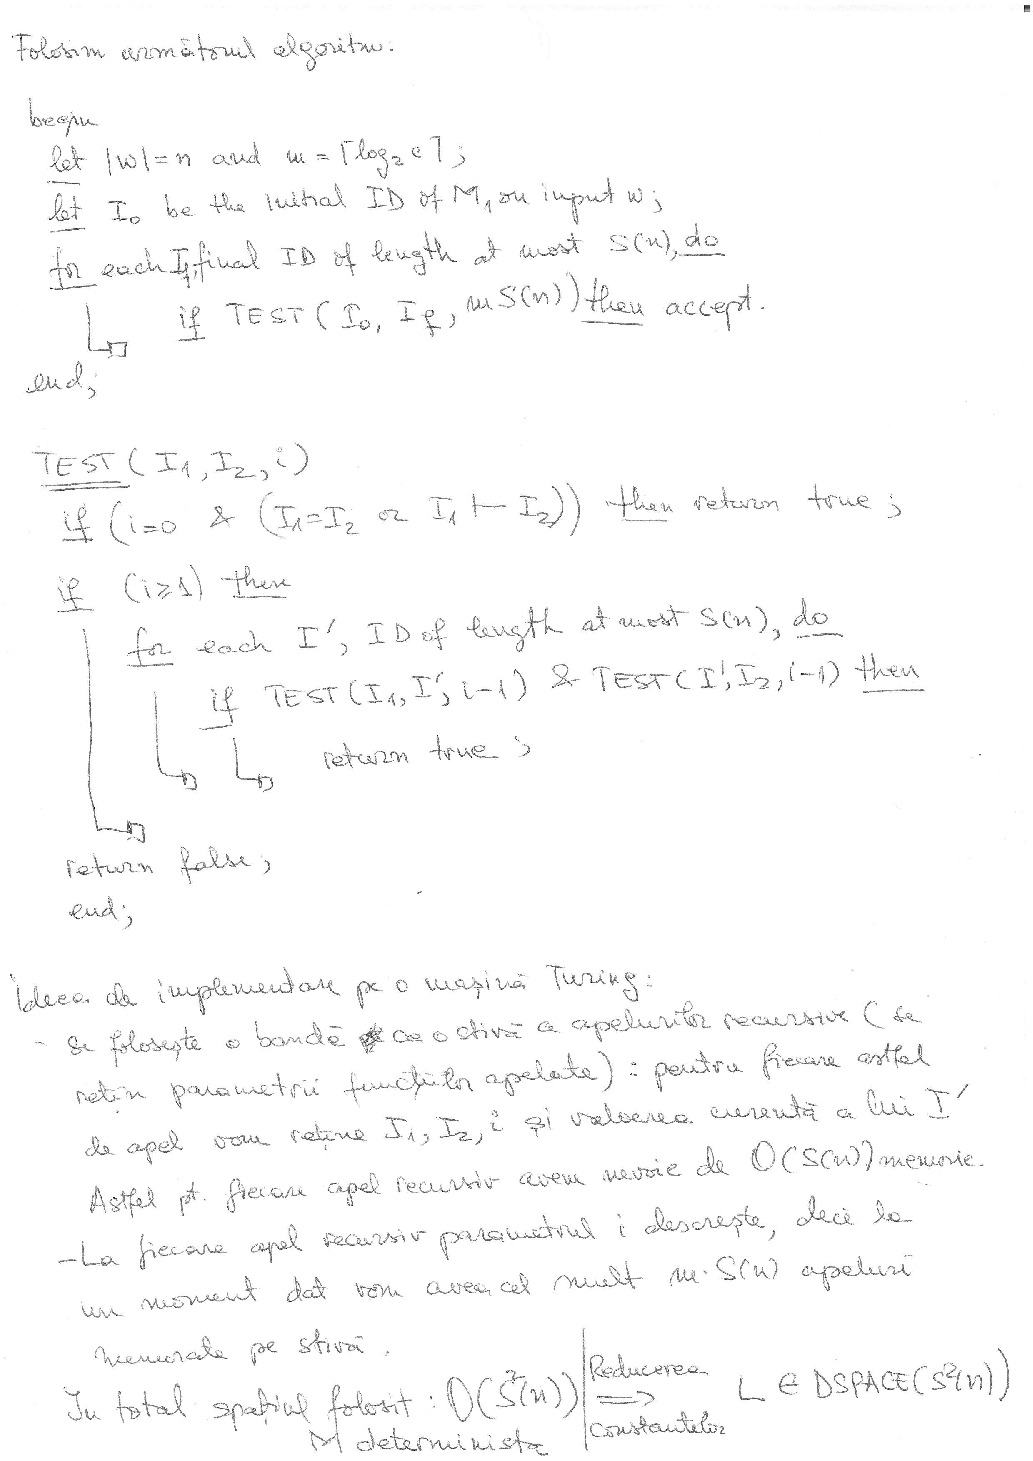 Folosim următorul algoritm:
begin
let |w|=n and m = ⌈log₂ c⌉;
let I₀ be the initial ID of M₁ on input w;
for each I_f, final ID of length at most S(n), do
if TEST (I₀, I_f, mS(n)) then accept.
end;
TEST (I₁, I₂, i)
if (i=0 & (I₁=I₂ or I₁ ⊢ I₂)) then return true;
if (i≥1) then
for each I', ID of length at most S(n), do
if TEST (I₁, I', i-1) & TEST (I', I₂, i-1) then
return true;
return false;
end;
Ideea de implementare pe o mașină Turing:
- Se folosește o bandă ca o stivă a apelurilor recursive (se
rețin parametrii funcțiilor apelate): pentru fiecare astfel
de apel vom reține I₁, I₂, i și valoarea curentă a lui I'
Astfel pt. fiecare apel recursiv avem nevoie de O(S(n)) memorie.
- La fiecare apel recursiv parametrul i descrește, deci la
un moment dat vom avea cel mult m·S(n) apeluri
memorate pe stivă.
In total spațiul folosit: O(S²(n)) | Reducerea constantelor ⟹ L ∈ DSPACE(S²(n))
M deterministă